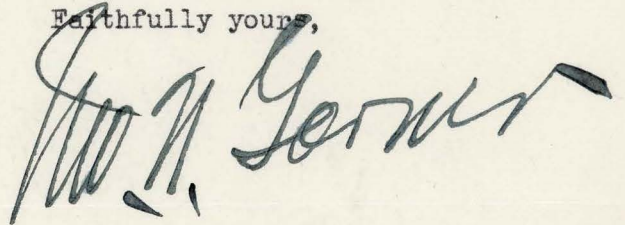 Faithfully yours,
Jno. N. Garner